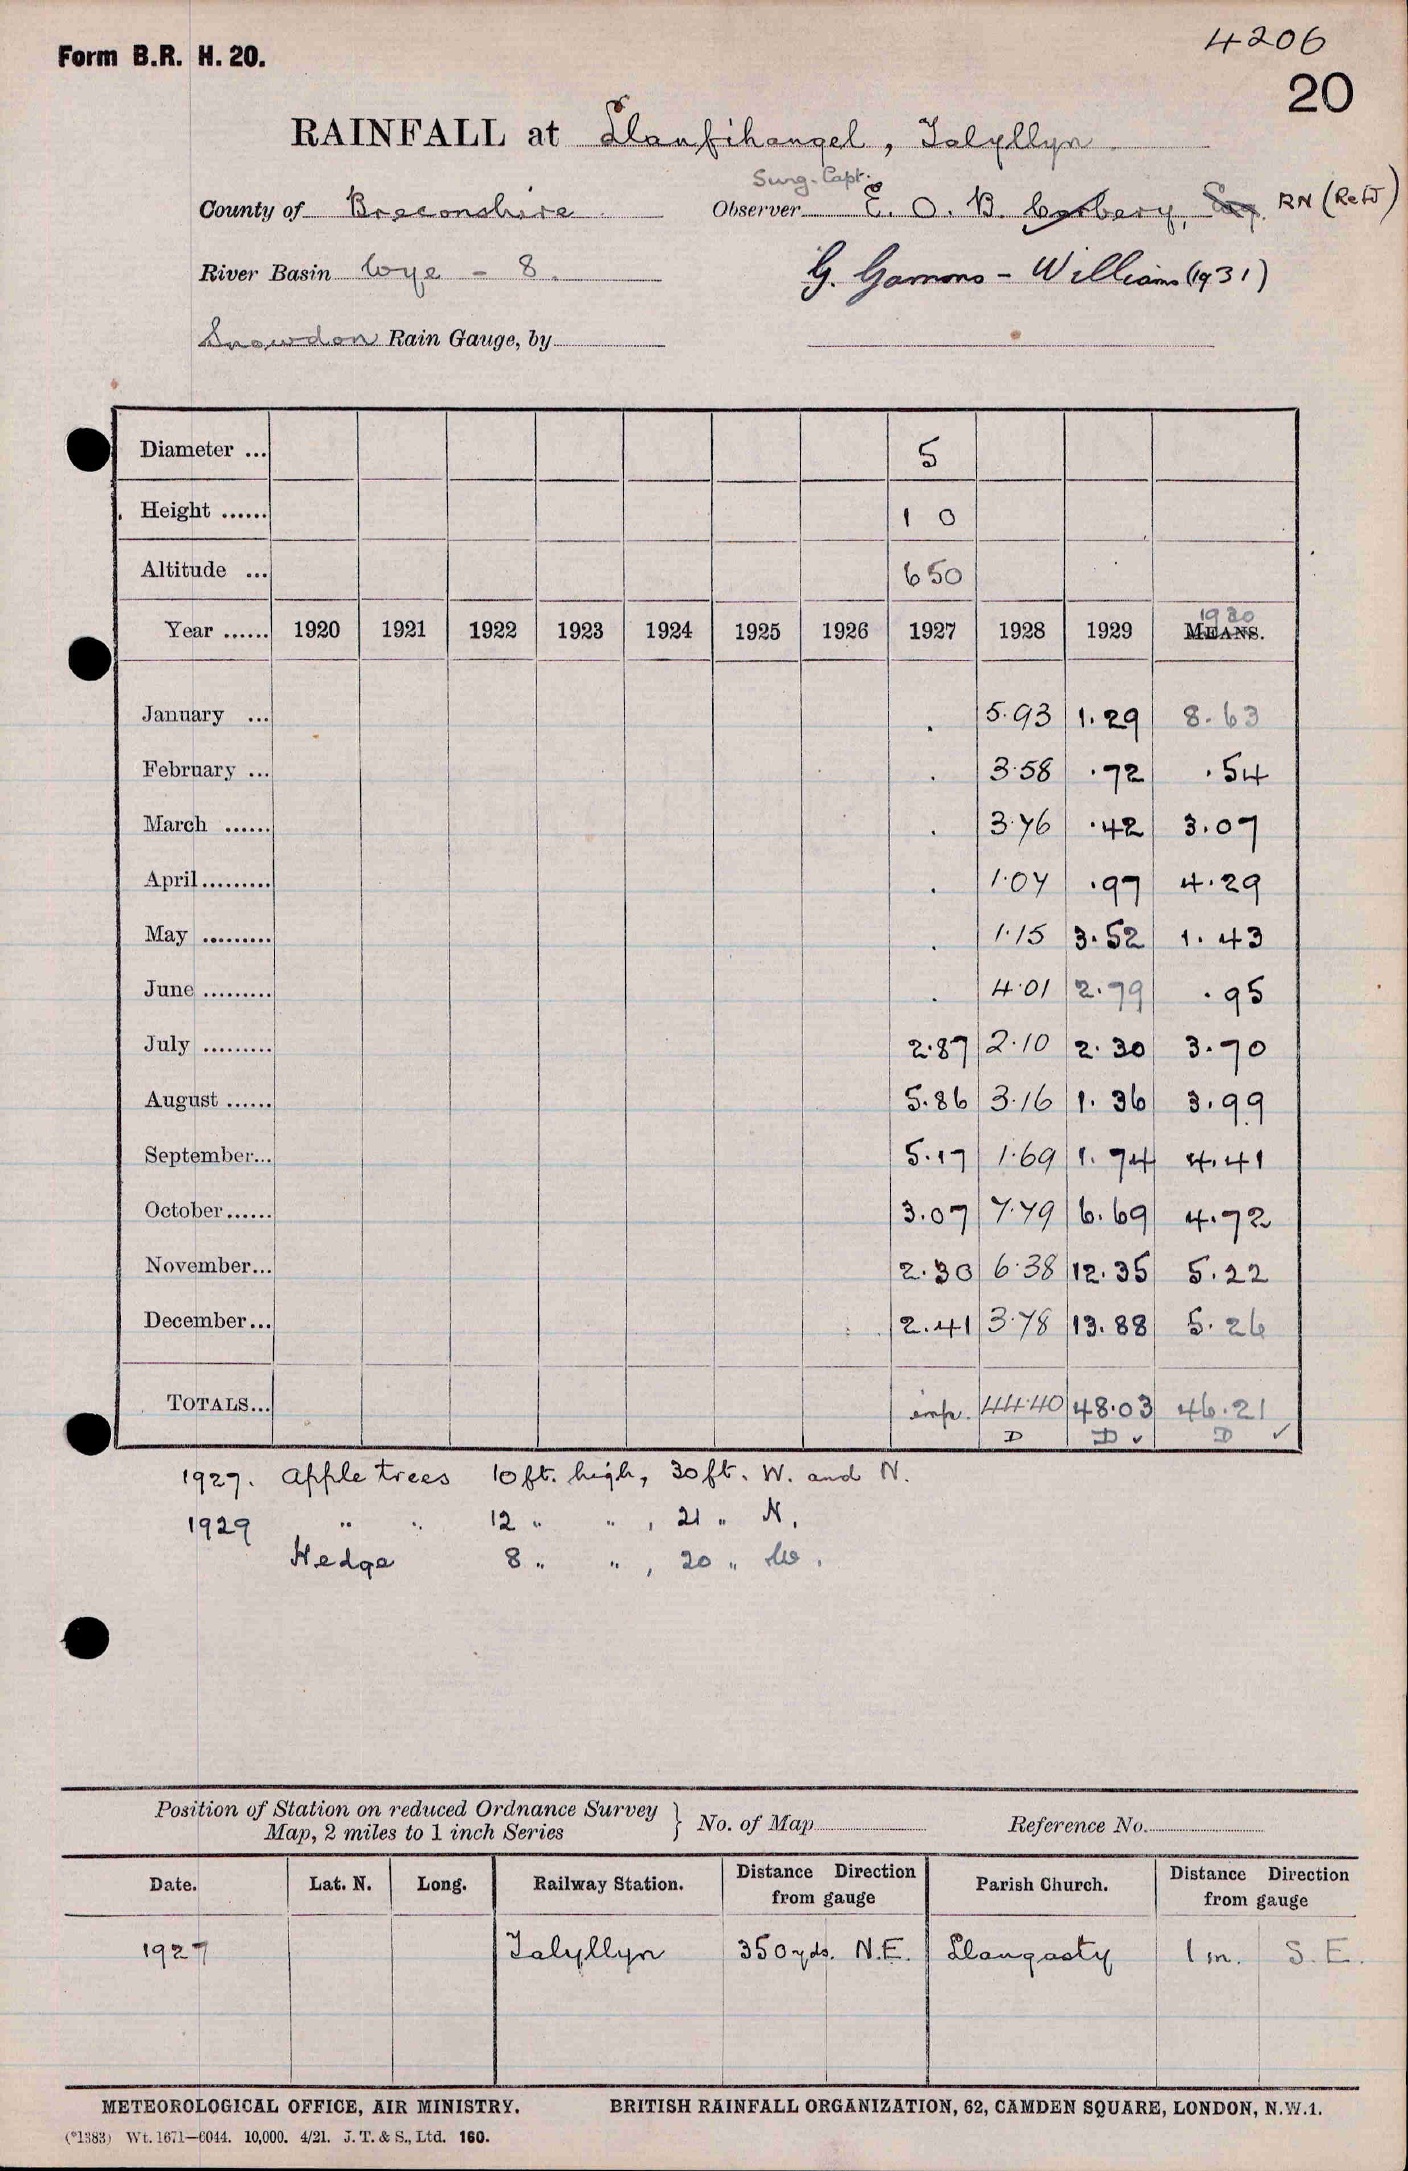 4206
Form B.R. H. 20.
20
RAINFALL at Llanfihangel, Talyllyn
Surg. Capt.
County of Breconshire Observer E. O. B. Carbery, Esq. RN (Retd)
River Basin Wye - 8. G. Garnons - Williams (1931)
Snowdon Rain Gauge, by
Diameter ... 5
Height ...... 1 0
Altitude ... 650
1930
Year ...... 1920 1921 1922 1923 1924 1925 1926 1927 1928 1929 MEANS.
January ... . 5.93 1.29 8.63
February ... . 3.58 .72 .54
March ...... . 3.76 .42 3.07
April ......... . 1.07 .97 4.29
May ......... . 1.15 3.52 1.43
June ......... . 4.01 2.79 .95
July ......... 2.87 2.10 2.30 3.70
August ...... 5.86 3.16 1.36 3.99
September... 5.17 1.69 1.74 4.41
October ...... 3.07 7.79 6.69 4.72
November... 2.30 6.38 12.35 5.22
December... 2.41 3.78 13.88 5.26
TOTALS... imp. 44.40 48.03 46.21
D D ✓ D ✓
1927. Apple trees 10 ft. high, 30 ft. W. and N.
1929 " " 12 " " , 21 " N.
Hedge 8 " " , 20 " W.
Position of Station on reduced Ordnance Survey
Map, 2 miles to 1 inch Series } No. of Map Reference No.
Date. Lat. N. Long. Railway Station. Distance Direction from gauge Parish Church. Distance Direction from gauge
1927 Talyllyn 350 yds. N.E. Llangasty 1 m. S.E.
METEOROLOGICAL OFFICE, AIR MINISTRY. BRITISH RAINFALL ORGANIZATION, 62, CAMDEN SQUARE, LONDON, N.W.1.
(*1383) Wt. 1671—6044. 10,000. 4/21. J. T. & S., Ltd. 160.